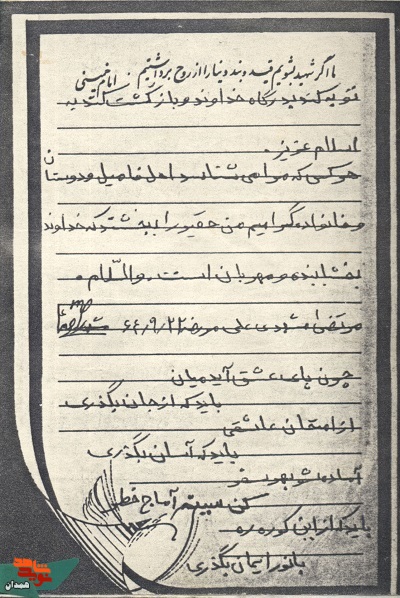 ما اگر شهید بشویم قید و بند دنیا را از روح برداشتیم . امام خمینی
توبه کنید درگاه خداوند و بازگشت کنید به
اسلام عزیز .
هر کسی که مرا می شناسد اهل فامیل و دوستان
و خانواده گرامیم من حقیر را ببخشند که خداوند
بخشاینده و مهربان است . والسّلام .
مرتضی علی مورخه ۶۴/۹/۲۲
چون پای عشق آید میان
باید که از جان بگذری
از امتحان عاشقی
باید که آسان بگذری
آماده شو بهر سفر
کن سینه آماج خطر
باید که از این کوره ره
با نور ایمان بگذری
همدان